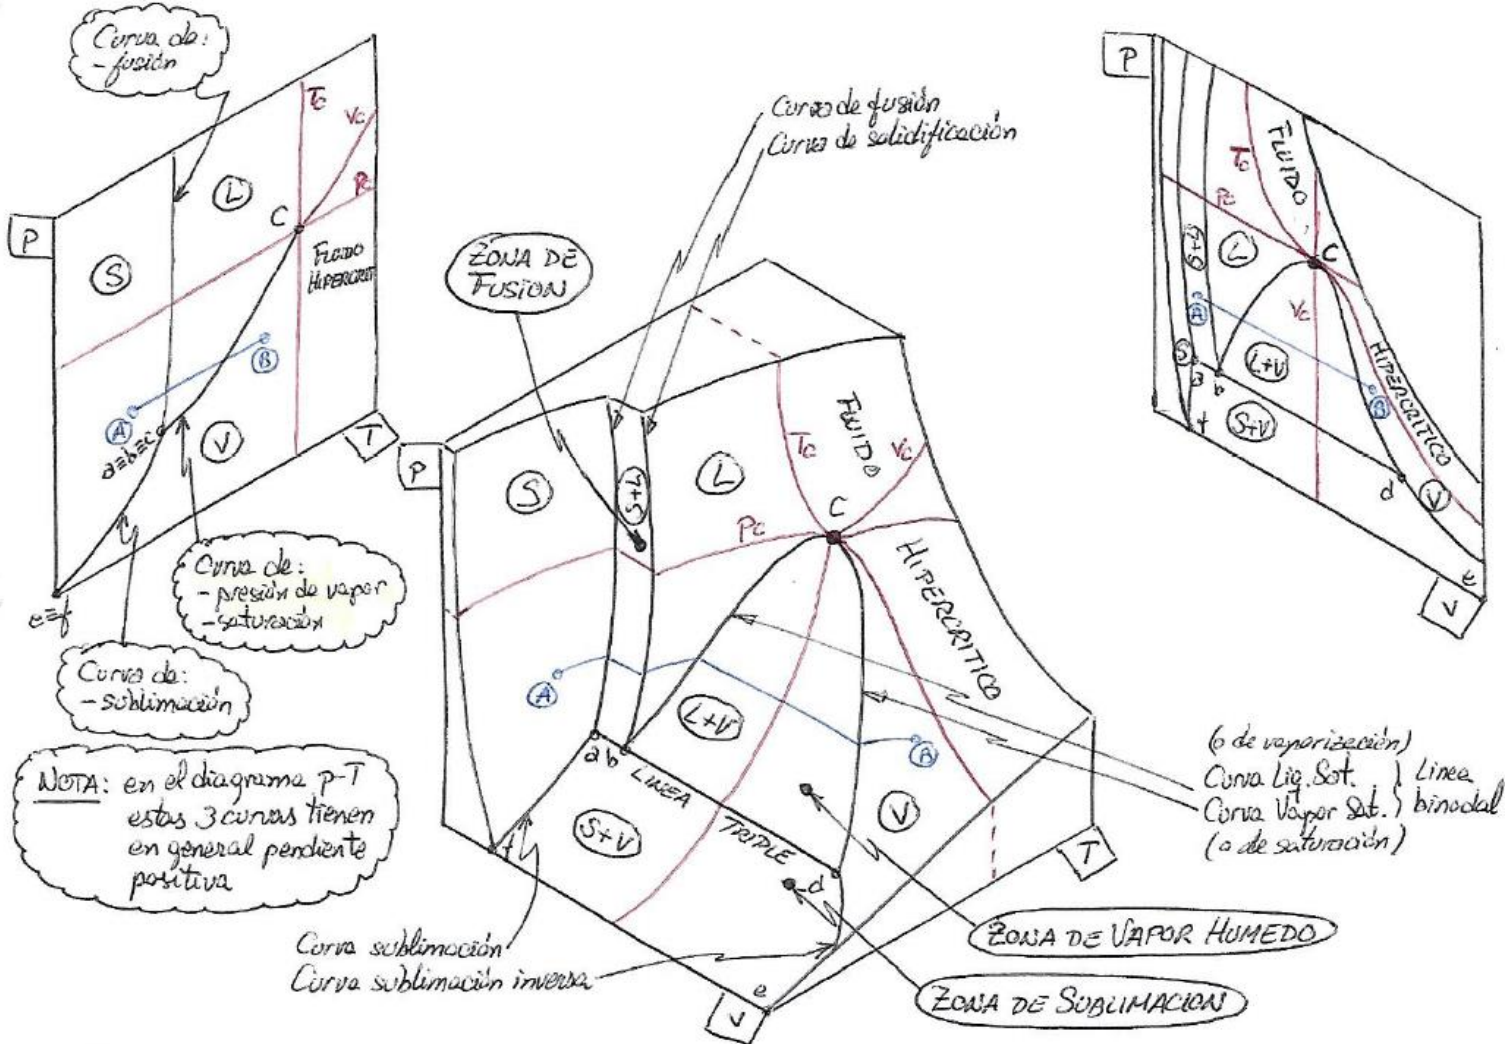 Curva de:
- fusión
P
S
L
Tc
Vc
Pc
C
FLUIDO
HIPERCRIT
A
B
a≡b≡c
V
T
e≡f
Curva de:
- presión de vapor
- saturación
Curva de:
- sublimación
NOTA: en el diagrama p-T
estas 3 curvas tienen
en general pendiente
positiva
Curva de fusión
Curva de solidificación
ZONA DE
FUSION
P
S
S+L
L
Tc
FLUIDO
Vc
Pc
C
HIPERCRITICO
A
L+V
B
a b
LINEA
TRIPLE
d
S+V
V
f
e
V
T
Curva sublimación
Curva sublimación inversa
(o de vaporización)
Curva Liq. Sat. } Linea
Curva Vapor Sat. } binodal
(o de saturación)
ZONA DE VAPOR HUMEDO
ZONA DE SUBLIMACION
P
Tc
FLUIDO
Pc
S+L
L
C
A
Vc
S
a b
L+V
HIPERCRITICO
B
S+V
f
d
V
e
V